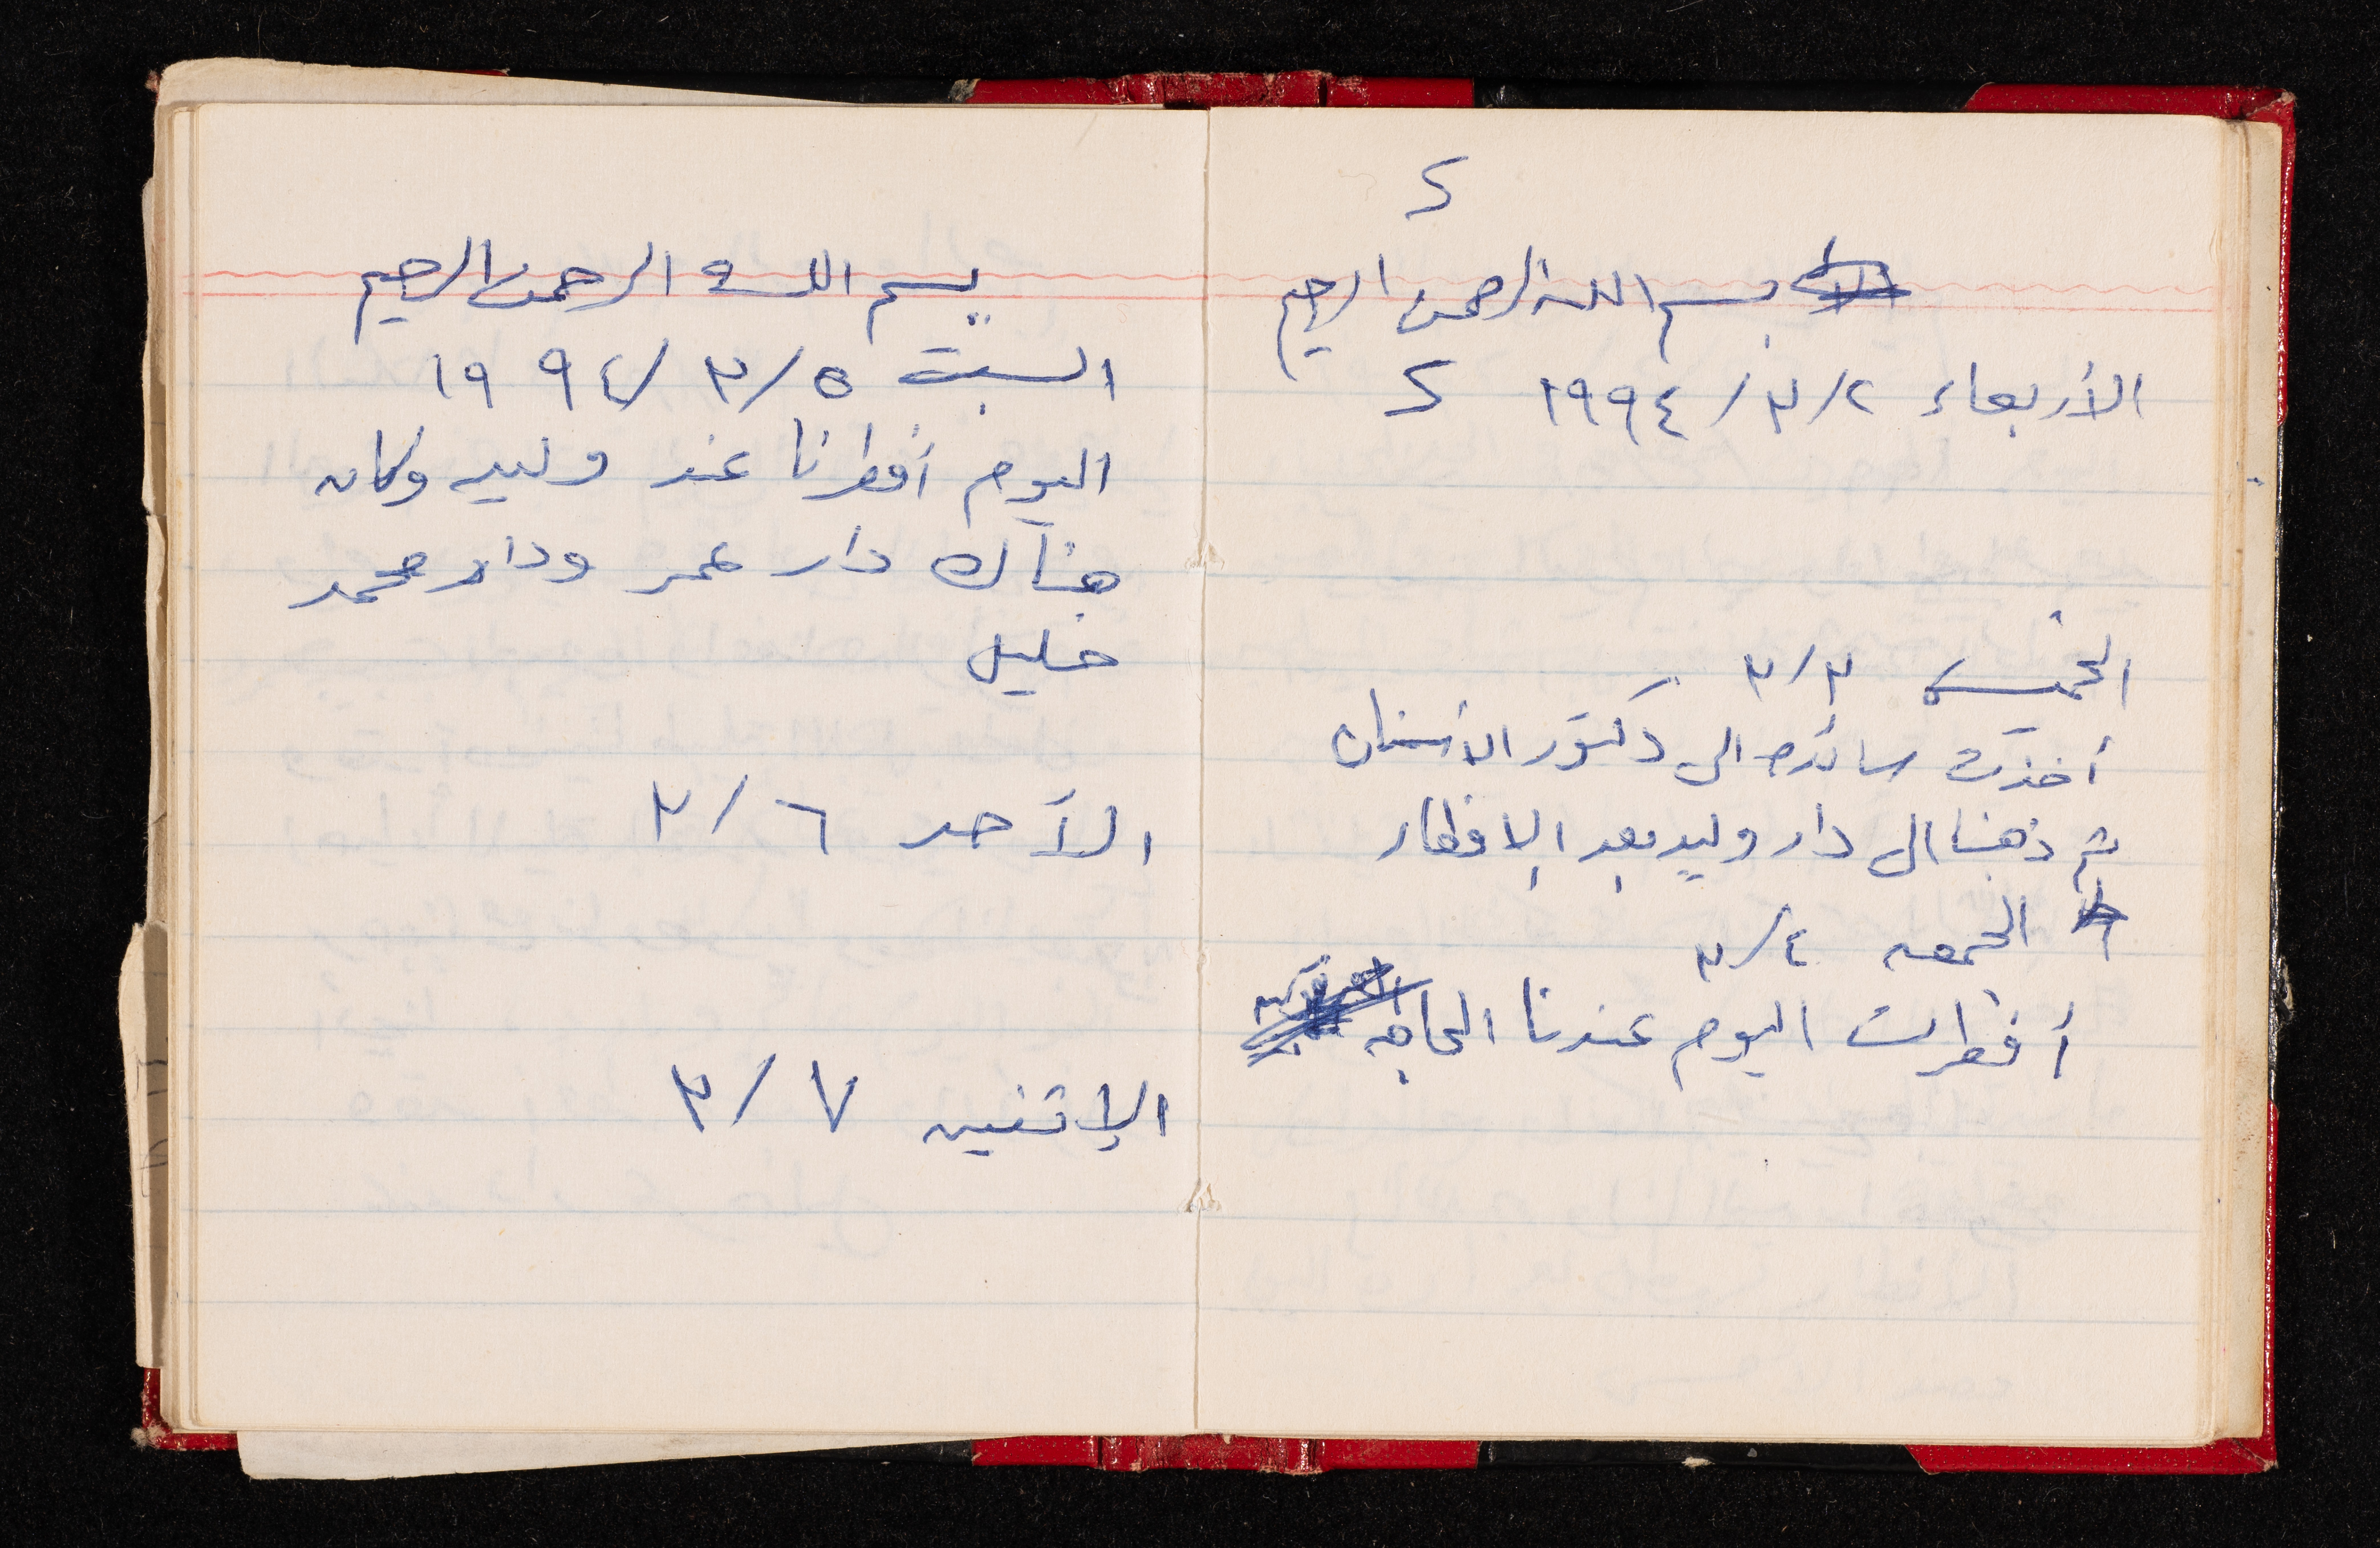 ٢
بسم الله الرحمن الرحيم
الأربعاء ٢/٣/١٩٩٤ ٢
الخميس ٣/٣
أخذت سائده الى دكتور الأسنان
ثم ذهبنا الى دار وليد بعد الإفطار
الجمعه ٤/٣
أفطرت اليوم عندنا الحاجه
بسم الله الرحمن الرحيم
السبت ٥/٣/١٩٩٤
اليوم أفطرنا عند وليد وكان
هناك دار عمر ودار محمد
خليل
الأحد ٦/٣
الإثنين ٧/٣